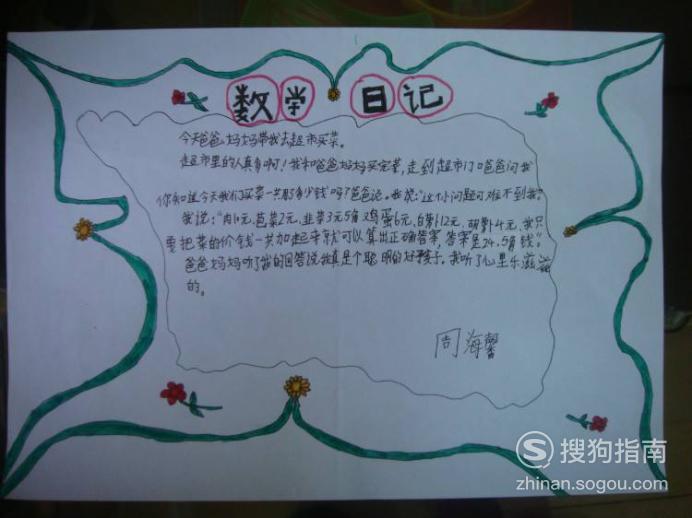 数学 日记
今天爸爸妈妈带我去超市买菜。
超市里的人真多啊！我和爸爸妈妈买完菜，走到超市门口爸爸问我
你知道今天我们买菜一共用了多少钱吗？爸爸说。我说：“这个小问题可难不到我”。
我说：“肉1元，芭菜2元，韭菜3元5角 鸡蛋6元，白萝卜12元，胡萝卜4元，我只
要把菜的价钱一共加起来就可以算出正确答案，答案是24.5角钱”。
爸爸妈妈听了我的回答说我真是个聪明的好孩子。我听了心里乐滋滋
的。
周海馨
搜狗指南
zhinan.sogou.com